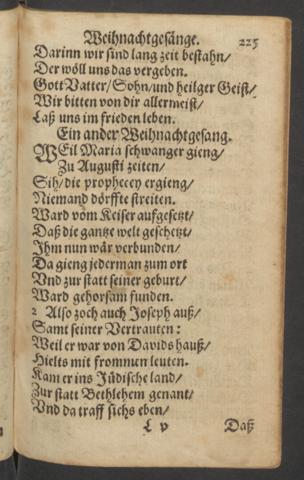 Weihnachtgesänge. 225
Darinn wir sind lang zeit bestahn/
Der wöll uns das vergeben.
Gott Vatter/Sohn/und heilger Geist/
Wir bitten von dir allermeist/
Laß uns im frieden leben.
Ein ander Weihnachtgesang.
WEil Maria schwanger gieng/
Zu Augusti zeiten/
Sih/die prophecey ergieng/
Niemand dörffte streiten.
Ward vom Keiser aufgesetzt/
Daß die gantze welt geschetzt/
Ihm nun wär verbunden/
Da gieng jederman zum ort
Vnd zur statt seiner geburt/
Ward gehorsam funden.
2 Also zoch auch Joseph auß/
Samt seiner Vertrauten:
Weil er war von Davids hauß/
Hielts mit frommen leuten.
Kam er ins Jüdische land/
Zur statt Bethlehem genant/
Vnd da traff sichs eben/
L v Daß